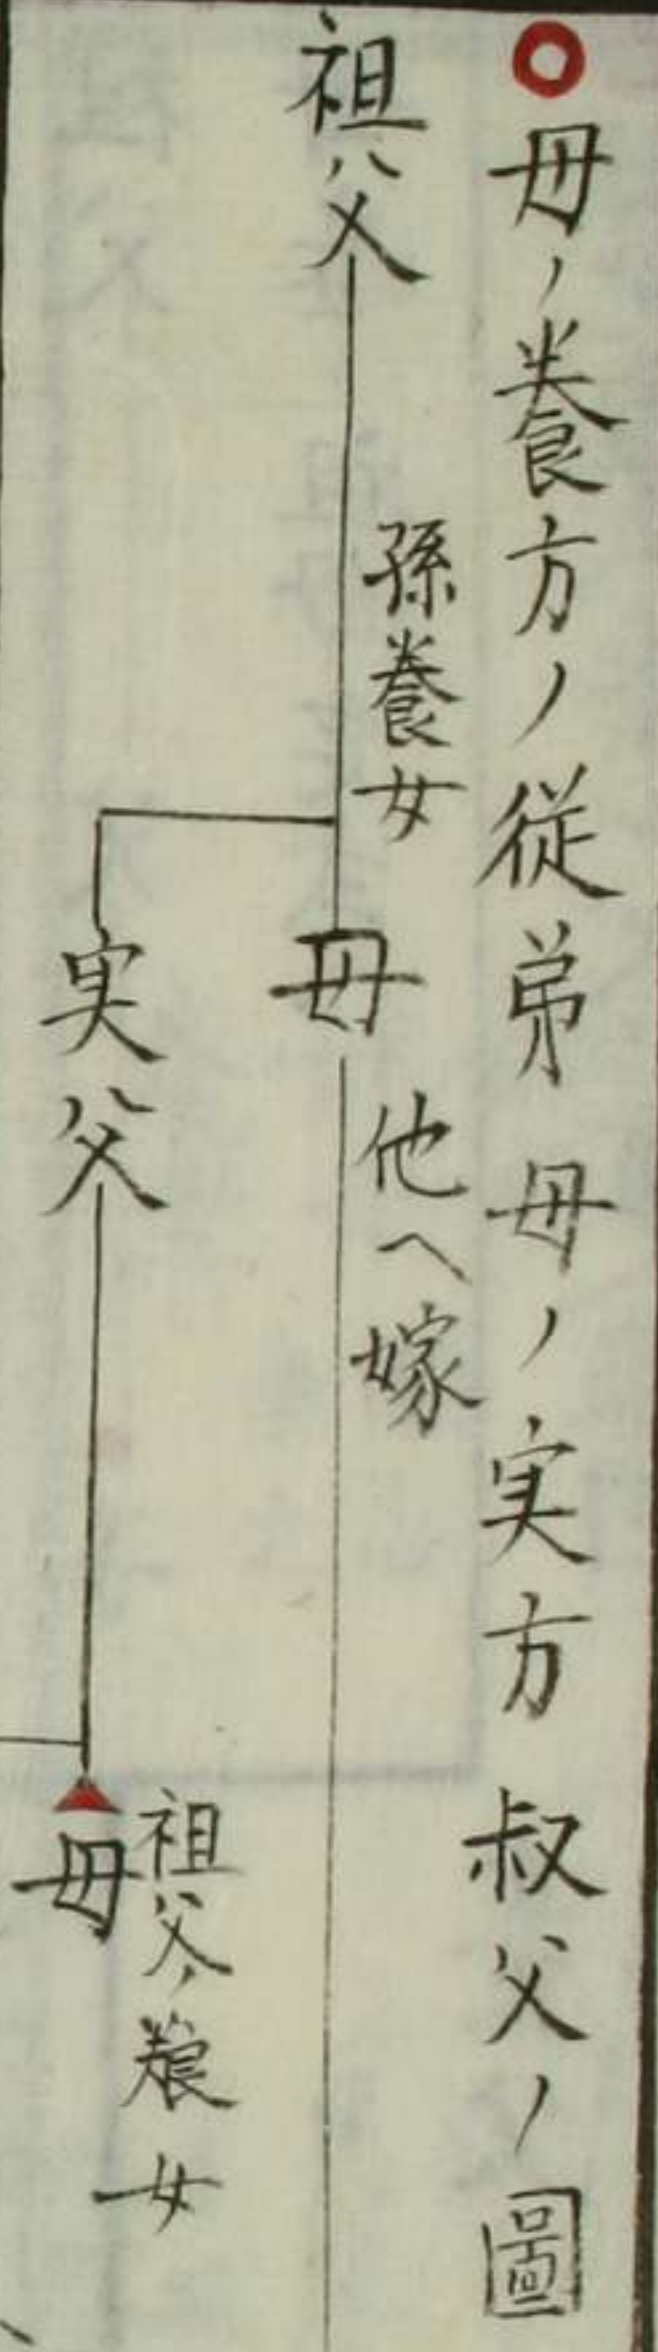 母ノ養方ノ従弟母ノ実方叔父ノ圖
祖父
孫養女
母
他ヘ嫁
実父
祖父ノ養女
母